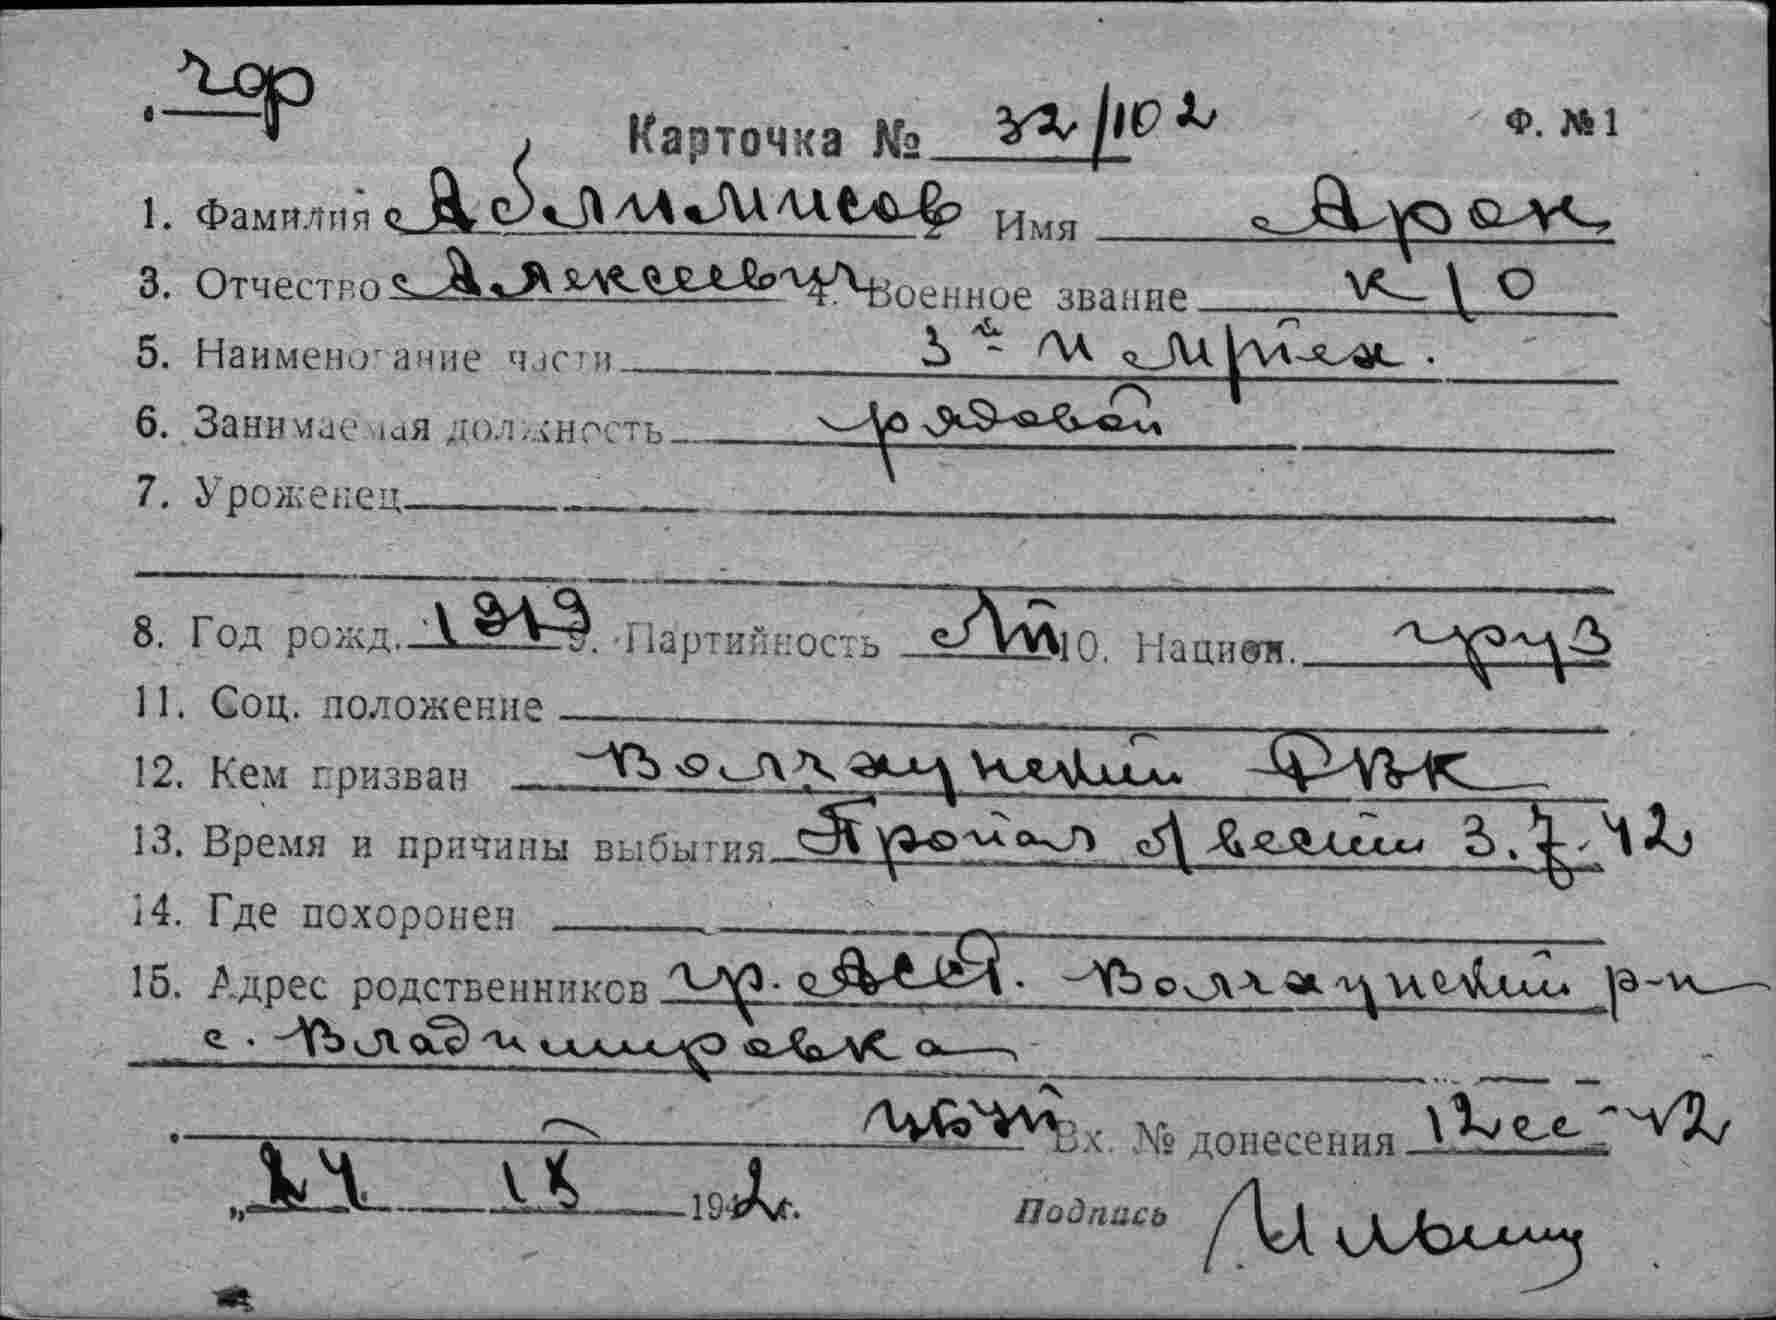 чор
Карточка № 32/102 Ф. №1
1. Фамилия Аблимисов 2 Имя Арон
3. Отчество Алексеевич 4. Военное звание К/О
5. Наименование части 3й
6. Занимаемая должность рядовой
7. Уроженец
8. Год рожд. 1919 9. Партийность 10. Национ. груз
11. Соц. положение
12. Кем призван Волчанский РВК
13. Время и причины выбытия Пропал б/вести 3.7.42
14. Где похоронен
15. Адрес родственников гр. АССР. Волчанский р-н
с. Владимировка
Вх. № донесения 42
„24 IX 1942г. Подпись Ильин